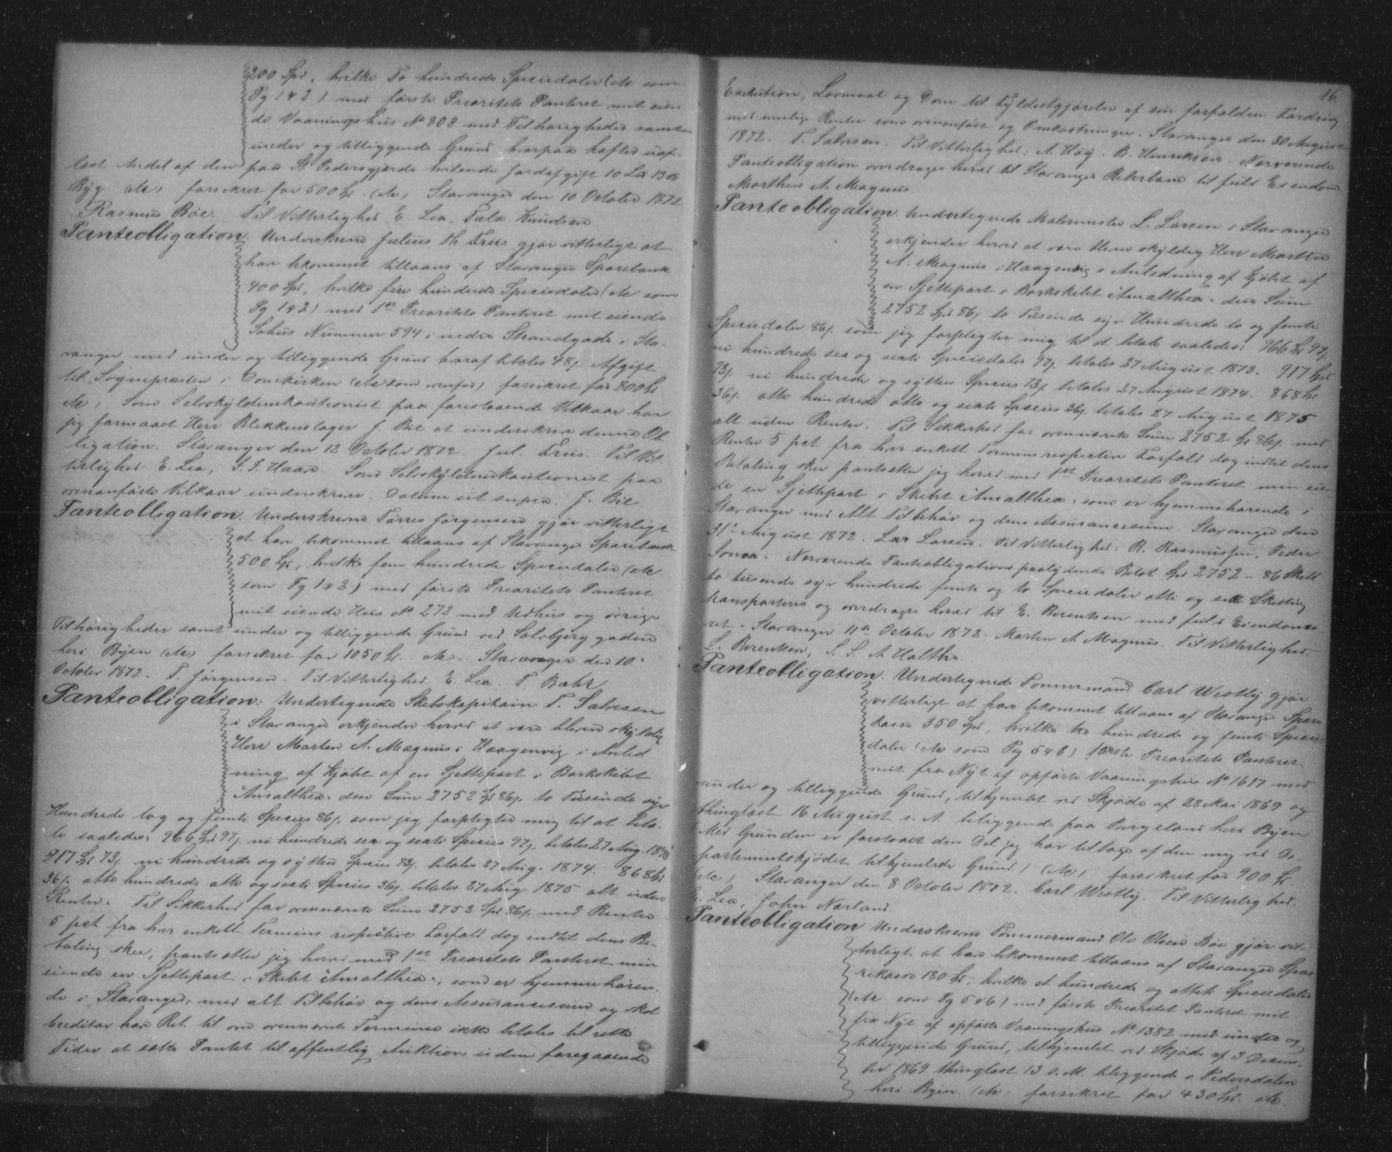 200 Spd, hvilke To hundrede Speciedaler (etc som
Pg 1 & 2) med første Prioritets Panteret mit eien-
de Vaaningshus No 808 med Tilhørigheder samt
under og tilliggende Grund, hvorpaa hefter uaf-
løst Andel af den paa St Pedersgjerde hvilende Jordafgift
Byg (etc) forsikret for 500 Spd. (etc) Stavanger den 10 October 1872
Rasmus Bøe. Til Vitterlighed E. Lea. Knudsen
Panteobligation. Underskrevne Julius Th. Friis gjør vitterligt at
have bekommet tillaans af Stavanger Sparekasse
400 Spd, hvilke fire hundrede Speciedaler (etc som
Pg 1 & 2) med 1ste Prioritets Panteret mit eiende
Søhus Nummer 594 i nedre Strandgade i Sta-
vanger med under og tilliggende Grund hvoraf betales 48 ß Afgift
til Sognepræsten i Domkirken (etc som ovenfor) forsikret for 800 Spd
etc; Som Selvskyldnerkautionist paa forestaaende Vilkaar har
jeg formaaet Herr Blikkenslager J. Bie at underskrive denne Ob-
ligation. Stavanger den 12 October 1872. Jul. Friis. Til Vit-
terlighed: E. Lea, Haave. Som Selvskyldnerkautionist paa
ovenanførte Vilkaar underskriver. Datum ut supra. J. Bie
Panteobligation. Underskrevne Tørres Jørgensen gjør vitterligt
at have bekommet tillaans af Stavanger Sparekasse
500 Spd, hvilke fem hundrede Speciedaler (etc
som Pg 1 & 2) med første Prioritets Panteret
mit eiende Hus No 272 med Udhus og øvrige
Tilhørigheder samt under og tilliggende Grund ved Sølvbjerg gaden
heri Byen (etc) forsikret for 1050 Spd. etc. Stavanger den 10
October 1872. T. Jørgensen. Til Vitterlighed. E. Lea. T. Bahr
Panteobligation: Undertegnede Skibskapitain T. Salvesen
i Stavanger erkjender herved at være bleven skyldig
Herr Marten A. Magnus i Haagenvig i Anled
ning af Kjøbet af en Sjettepart i Barkskibet
"Amalthea" den Sum 2752 Spd 86 ß to Tusinde syv
Hundrede to og femti Species 86 ß som jeg forpligter mig til at beta-
le saaledes: 966 Spd 97 ß ni hundrede sex og sexti Species 97 ß betales 27 Aug. 1873
917 Spd 73 ß ni hundrede og sytten Species 73 ß betales 27 Aug. 1874. 868 Spd
36 ß otte hundrede otte og sexti Species 36 ß betales 27 Aug. 1875 alt uden
Renter. Til Sikkerhed for ovennævnte Sum 2752 Spd 86 ß med Renter
5 pct fra hver enkelt Termins respective Forfald dag indtil dens Be-
taling sker, pantsætter jeg herved med 1ste Prioritets Panteret min
eiende en Sjettepart i Skibet "Amalthea", som er hjemmehøren-
de i Stavanger, med alt Tilbehør og dens Assurancesum og skal
Creditor have Ret til om ovennævnte Terminer ikke betales til rette
Tider at sætte Pantet til offentlig Auktion uden foregaaende
16.
Exekution, Lovmaal og Dom til Fyldestgjørelse af sin forfaldne Fordring
med muelige Renter som ovenanført og Omkostninger. Stavanger den 30 August
1872. T. Salvesen. Til Vitterlighed: A. Høy. B. Henriksen. Nærværende
Panteobligation overdrages herved til Stavanger til fuld Eiendom
Marthen A. Magnus.
Panteobligation. Undertegnede Malermester L. Larsen i Stavanger
erkjender herved at være bleven skyldig Herr Marthen
A. Magnus i Haagenvig i Anledning af Kjøbet af
en Sjettepart i Barkskibet Amalthea, den Sum
2752 Spd 86 ß to Tusinde syv Hundrede to og femti
Speciedaler 86 ß som jeg forpligter mig til at betale saaledes: 966 Spd 97 ß
ni hundrede sex og sexti Speciedaler 97 ß betales 27 August 1873. 917 Spd
73 ß ni hundrede og sytten Species 73 ß betales 27 August 1874. 868 Spd
36 ß otte hundrede otte og sexti Species 36 ß betales 27 August 1875
alt uden Renter. Til Sikkerhed for ovennævnte Sum 2752 Spd 86 ß med
Renter 5 pct fra hver enkelt Termins respective Forfald dag indtil dens
Betaling sker pantsætter jeg herved med 1ste Prioritets Panteret min eien
de en Sjettepart i Skibet Amalthea, som er hjemmehørende i
Stavanger med Alt Tilbehør og dens Assurancesum. Stavanger den
31te August 1872. Lars Larsen. Til Vitterlighed: R. Rasmussen, Peder
Nærværende Panteobligations paalydende Beløb Spd 2752 – 86 Skill
to tusende syv hundrede femti og to Speciedaler otti og sex Skilling
transporteres og overdrages herved til E. Berentsen med fuld Eiendoms-
ret. Stavanger 11te October 1872. Marten A. Magnus. Til Vitterlighed:
L. Berentsen, S. S. A. Holthe.
Panteobligation. Undertegnede Tømmermand Carl Westby gjør
vitterligt at have bekommet tillaans af Stavanger Spare
kasse 350 Spd, hvilke tre hundrede og femti Specie
daler (etc som Pg 5 & 6) første Prioritets Panteret
mit fra Nyt af opførte Vaaningshus No 1617 med
under og tilliggende Grund, tilhjemlet ved Skjøde af 28 Mai 1869 og
thinglæst 16 August s. A. beliggende paa Bergeland heri Byen
Med Grunden er forstaaet den Del jeg har tilbage af den mig ved De-
partementskjødet tilhjemlede Grund (etc) forsikret for 900 Spd
(etc) Stavanger den 8 October 1872. Carl Westby. Til Vitterlighed.
E. Lea, John Nærland
Panteobligation Underskrevne Tømmermand Ole Olsen Bøe gjør vit
terligt at have bekommet tillaans af Stavanger Spa-
rekasse 180 Spd, hvilke et hundrede og otteti Speciedaler
(etc som Pg 5 & 6) med første Prioritet Panteret mit
fra Nyt af opførte Vaaningshus No 1382 med under og
tilliggende Grund, tilhjemlet ved Skjøde af 3 Decem-
ber 1869 thinglæst 13 s. M. beliggende i Pedersdalen
heri Byen (etc) forsikret for 430 Spd. etc